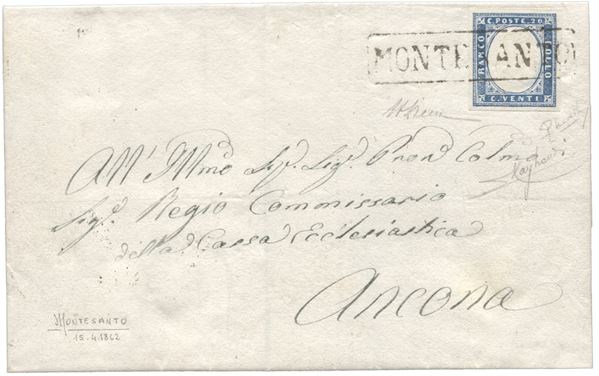 C. POSTE. 20
FRANCO
BOLLO
C. VENTI
MONTESANTO
All' Illmo Sig. Sig. Pron Colmo
Sig. Regio Commissario
della Cassa Ecclesiastica
Ancona
MONTESANTO
15.4.1862